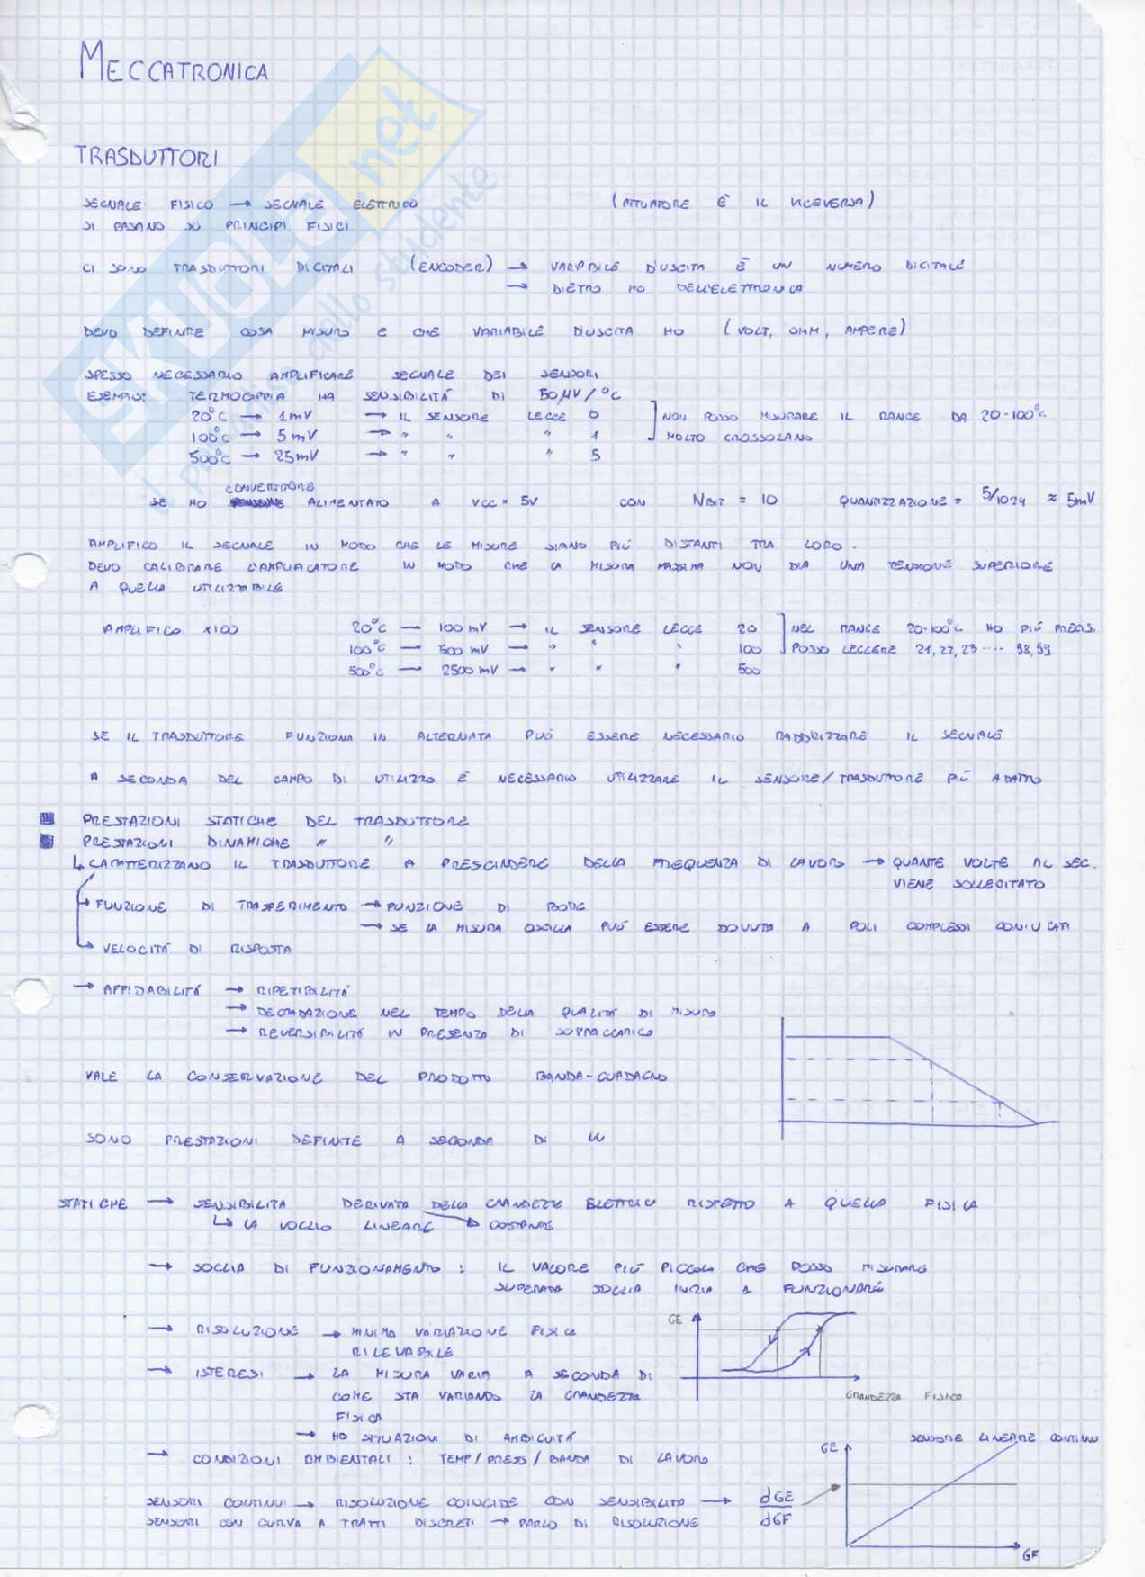 MECCATRONICA
TRASDUTTORI
SEGNALE FISICO → SEGNALE ELETTRICO (ATTUATORE È IL VICEVERSA)
SI BASANO SU PRINCIPI FISICI
CI SONO TRASDUTTORI DIGITALI (ENCODER) → VARIABILE D'USCITA È UN NUMERO DIGITALE
→ DIETRO HO DELL'ELETTRONICA
DEVO DEFINIRE COSA MISURO E CHE VARIABILE D'USCITA HO (VOLT, OHM, AMPERE)
SPESSO NECESSARIO AMPLIFICARE SEGNALE DEI SENSORI
ESEMPIO: TERMOCOPPIA HA SENSIBILITÀ DI 50µV/°C
20°C → 1mV → IL SENSORE LEGGE 0 NON POSSO MISURARE IL RANGE DA 20-100°C
100°C → 5mV → " " " 1 MOLTO GROSSOLANO
500°C → 25mV → " " " 5
CONVERTITORE
SE HO ALIMENTATO A VCC = 5V CON NBIT = 10 QUANTIZZAZIONE = 5/1024 ≈ 5mV
AMPLIFICO IL SEGNALE IN MODO CHE LE MISURE SIANO PIÙ DISTANTI TRA LORO.
DEVO CALIBRARE L'AMPLIFICATORE IN MODO CHE LA MISURA MASSIMA NON DIA UNA TENSIONE SUPERIORE
A QUELLA UTILIZZABILE
AMPLIFICO x100 20°C — 100 mV → IL SENSORE LEGGE 20 NEL RANGE 20-100°C HO PIÙ MISUR.
100°C — 500 mV → " " " 100 POSSO LEGGERE 21, 22, 23 .... 98, 99
500°C — 2500 mV → " " " 500
SE IL TRASDUTTORE FUNZIONA IN ALTERNATA PUÒ ESSERE NECESSARIO RADDRIZZARE IL SEGNALE
A SECONDA DEL CAMPO DI UTILIZZO È NECESSARIO UTILIZZARE IL SENSORE/TRASDUTTORE PIÙ ADATTO
PRESTAZIONI STATICHE DEL TRASDUTTORE
PRESTAZIONI DINAMICHE " "
↳ CARATTERIZZANO IL TRASDUTTORE A PRESCINDERE DELLA FREQUENZA DI LAVORO → QUANTE VOLTE AL SEC.
VIENE SOLLECITATO
→ FUNZIONE DI TRASFERIMENTO → FUNZIONE DI BODE
→ SE LA MISURA OSCILLA PUÒ ESSERE DOVUTO A POLI COMPLESSI CONIUGATI
→ VELOCITÀ DI RISPOSTA
→ AFFIDABILITÀ → RIPETIBILITÀ
→ DEGRADAZIONE NEL TEMPO DELLA QUALITÀ DI MISURA
→ REVERSIBILITÀ IN PRESENZA DI SOPRACCARICO
VALE LA CONSERVAZIONE DEL PRODOTTO BANDA-GUADAGNO
SONO PRESTAZIONI DEFINITE A SECONDA DI W
STATICHE → SENSIBILITÀ DERIVATA DELLA GRANDEZZA ELETTRICA RISPETTO A QUELLA FISICA
↳ LA VOGLIO LINEARE → COSTANTE
→ SOGLIA DI FUNZIONAMENTO: IL VALORE PIÙ PICCOLO CHE POSSO MISURARE
SUPERATA SOGLIA INIZIA A FUNZIONARE
→ RISOLUZIONE → MINIMA VARIAZIONE FISICA
RILEVABILE
GE
→ ISTERESI → LA MISURA VARIA A SECONDA DI
COME STA VARIANDO LA GRANDEZZA
FISICA
GRANDEZZA FISICA
→ HO SITUAZIONI DI AMBIGUITÀ
→ CONDIZIONI AMBIENTALI: TEMP/PRESS/BANDA DI LAVORO
GE SENSORE LINEARE CONTINUO
SENSORI CONTINUI → RISOLUZIONE COINCIDE CON SENSIBILITÀ → dGE/dGF
SENSORI CON CURVA A TRATTI DISCRETI → PARLO DI RISOLUZIONE
GF
SKUOLA.net